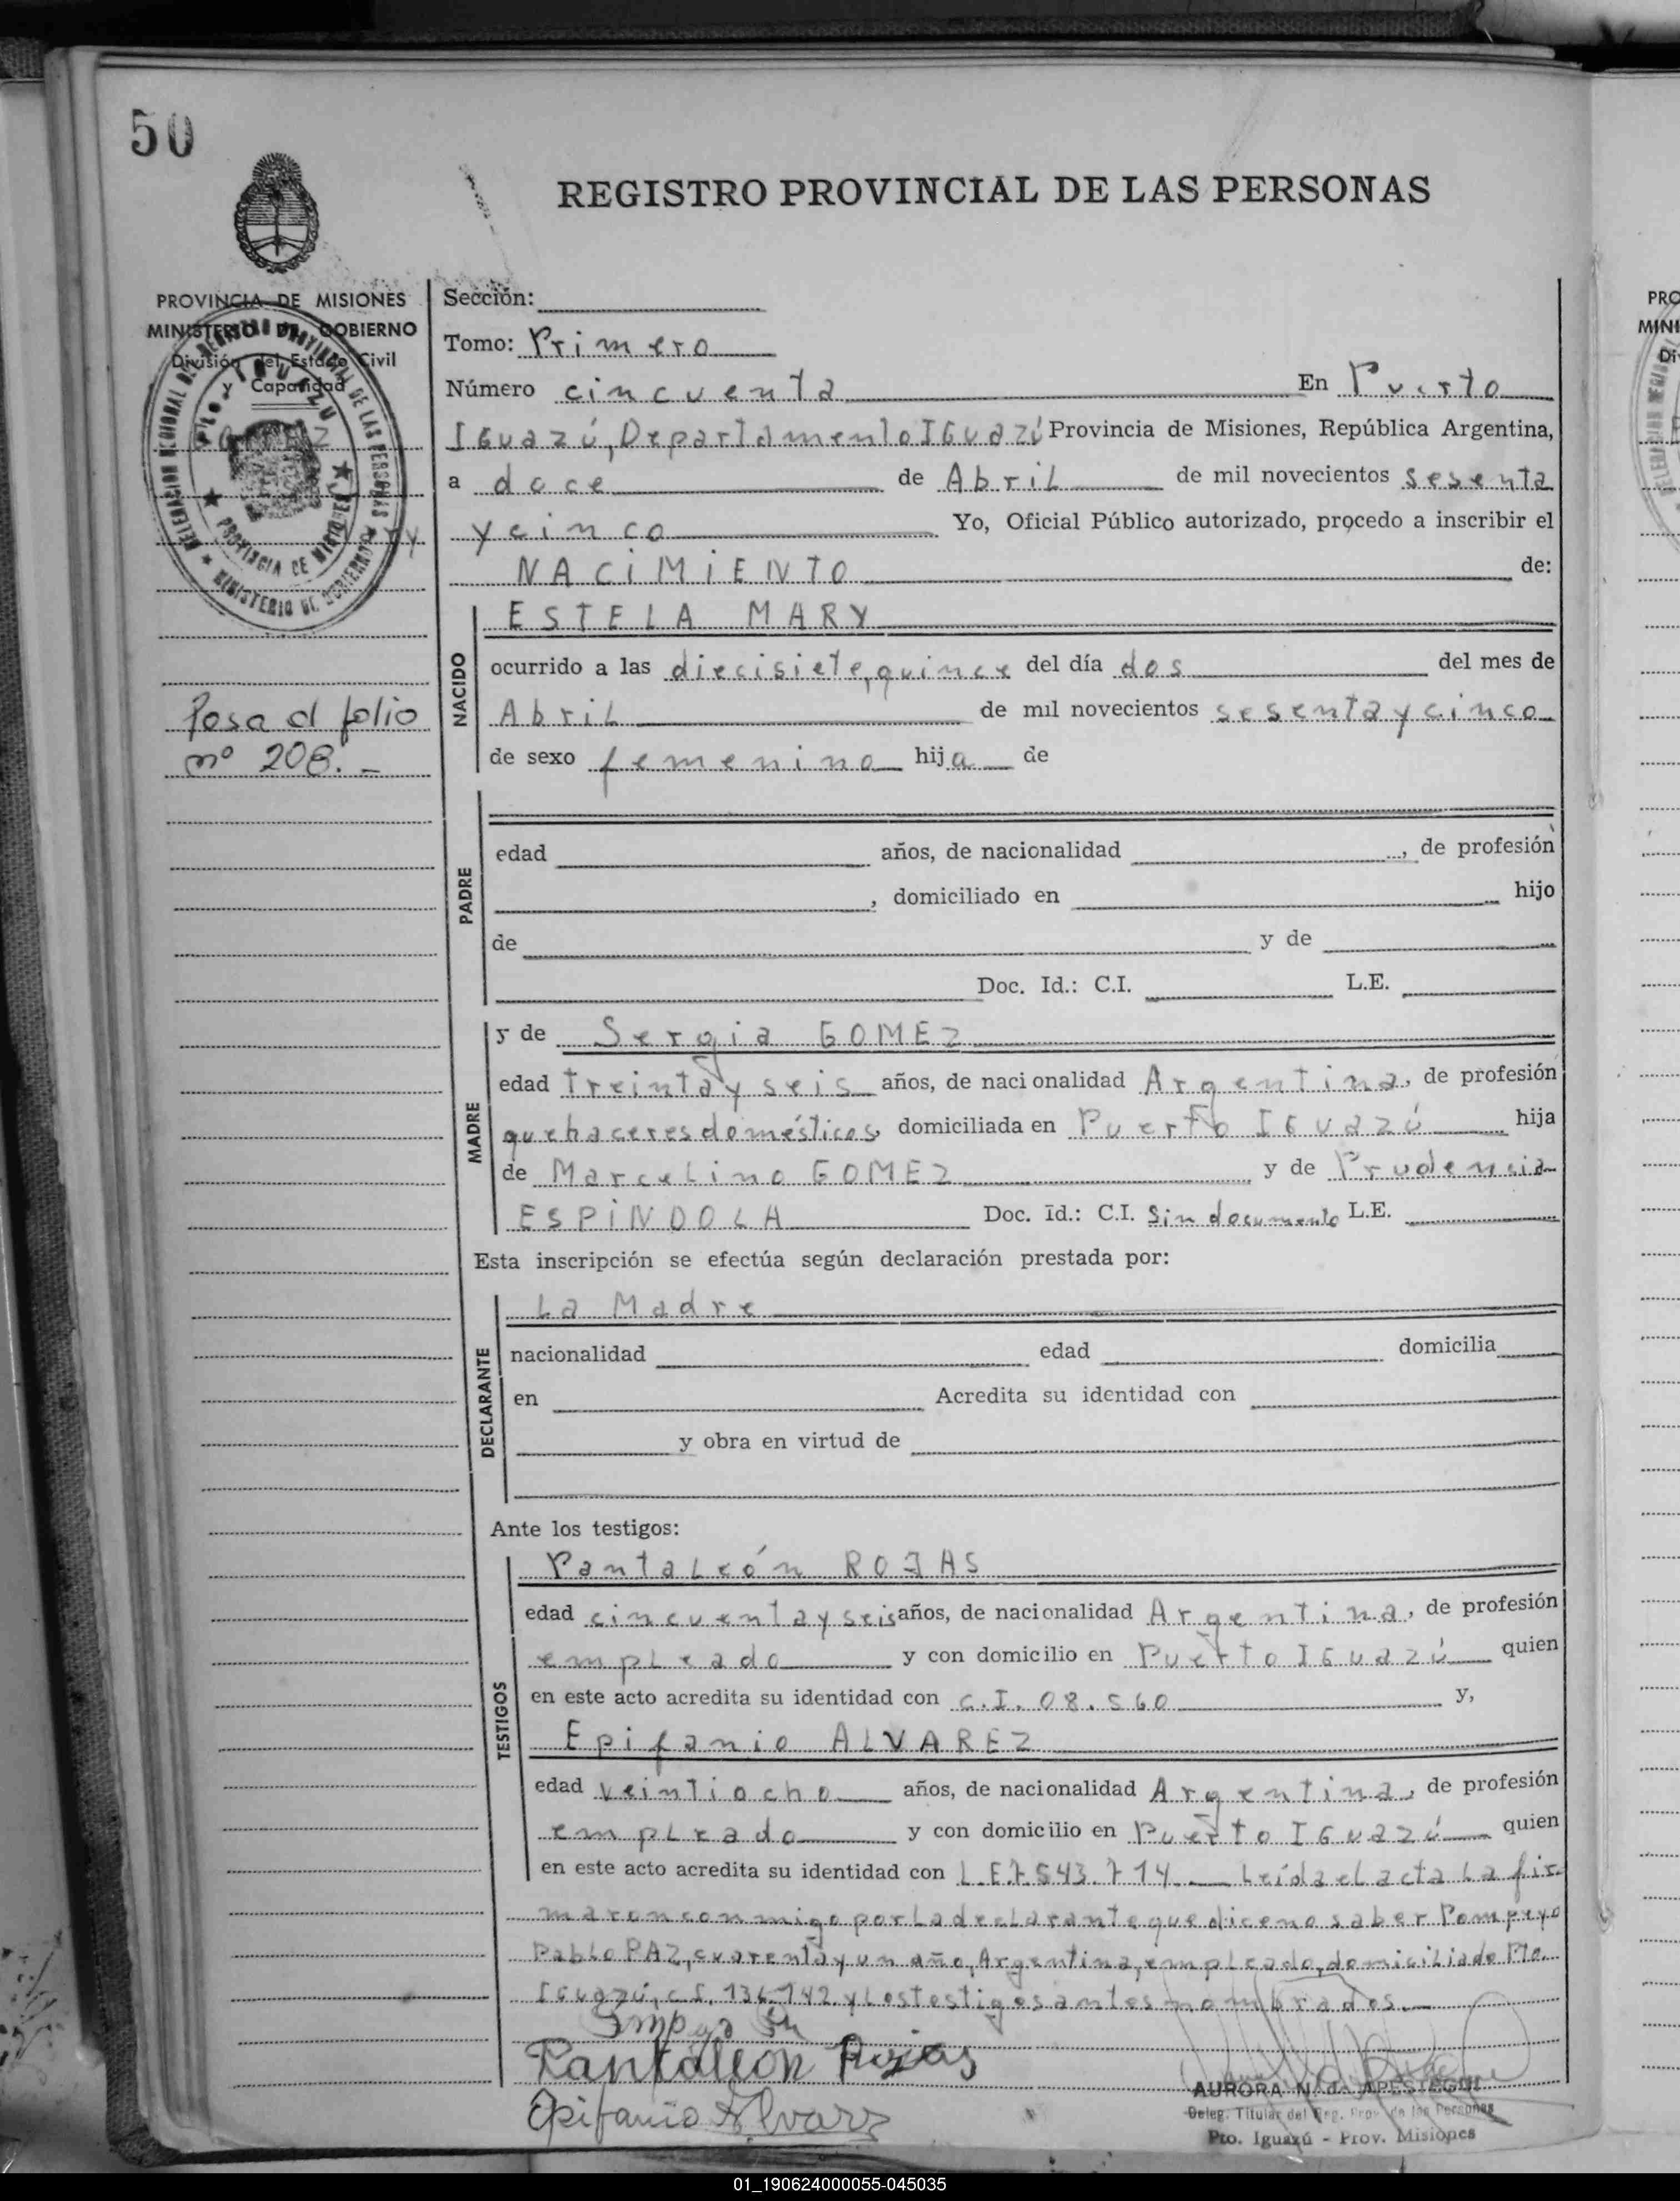 50
REGISTRO PROVINCIAL DE LAS PERSONAS
PROVINCIA DE MISIONES
MINISTERIO DE GOBIERNO
División del Estado Civil
y Capacidad
GOMEZ
Pasa al folio
nº 208.-
Sección:
Tomo: Primero
Número cincuenta En Puerto
IGuazú, Departamento IGuazú Provincia de Misiones, República Argentina,
a doce de Abril de mil novecientos sesenta
y cinco Yo, Oficial Público autorizado, procedo a inscribir el
NACiMiENTO de:
NACIDO
ESTELA MARY
ocurrido a las diecisiete, quince del día dos del mes de
Abril de mil novecientos sesenta y cinco
de sexo femenino hija de
PADRE
edad años, de nacionalidad , de profesión
, domiciliado en hijo
de y de
Doc. Id.: C.I. L.E.
MADRE
y de Sergia GOMEZ
edad treinta y seis años, de nacionalidad Argentina, de profesión
quehaceres domésticos, domiciliada en Puerto IGuazú hija
de Marcelino GOMEZ y de Prudencia
ESPiNDOLA Doc. Id.: C.I. Sin documento L.E.
Esta inscripción se efectúa según declaración prestada por:
DECLARANTE
La Madre
nacionalidad edad domicilia
en Acredita su identidad con
y obra en virtud de
Ante los testigos:
TESTIGOS
Pantaleón ROJAS
edad cincuenta y seis años, de nacionalidad Argentina, de profesión
empleado y con domicilio en Puerto IGuazú quien
en este acto acredita su identidad con C.I. 08.560 y,
Epifanio ALVAREZ
edad veintiocho años, de nacionalidad Argentina, de profesión
empleado y con domicilio en Puerto IGuazú quien
en este acto acredita su identidad con L.E.7.543.714. Leída el acta la fir
maron conmigo por la declarante que dice no saber Pompeyo
Pablo PAZ, cuarenta y un año, Argentina, empleado, domiciliado Pto.
IGuazú, C.I. 136.742. y los testigos antes nombrados.
Pantaleon Rojas
Epifanio Alvarz
AURORA N. de APESTEGUI
Deleg. Titular del Reg. Prov. de las Personas
Pto. Iguazú - Prov. Misiones
01_190624000055-045035